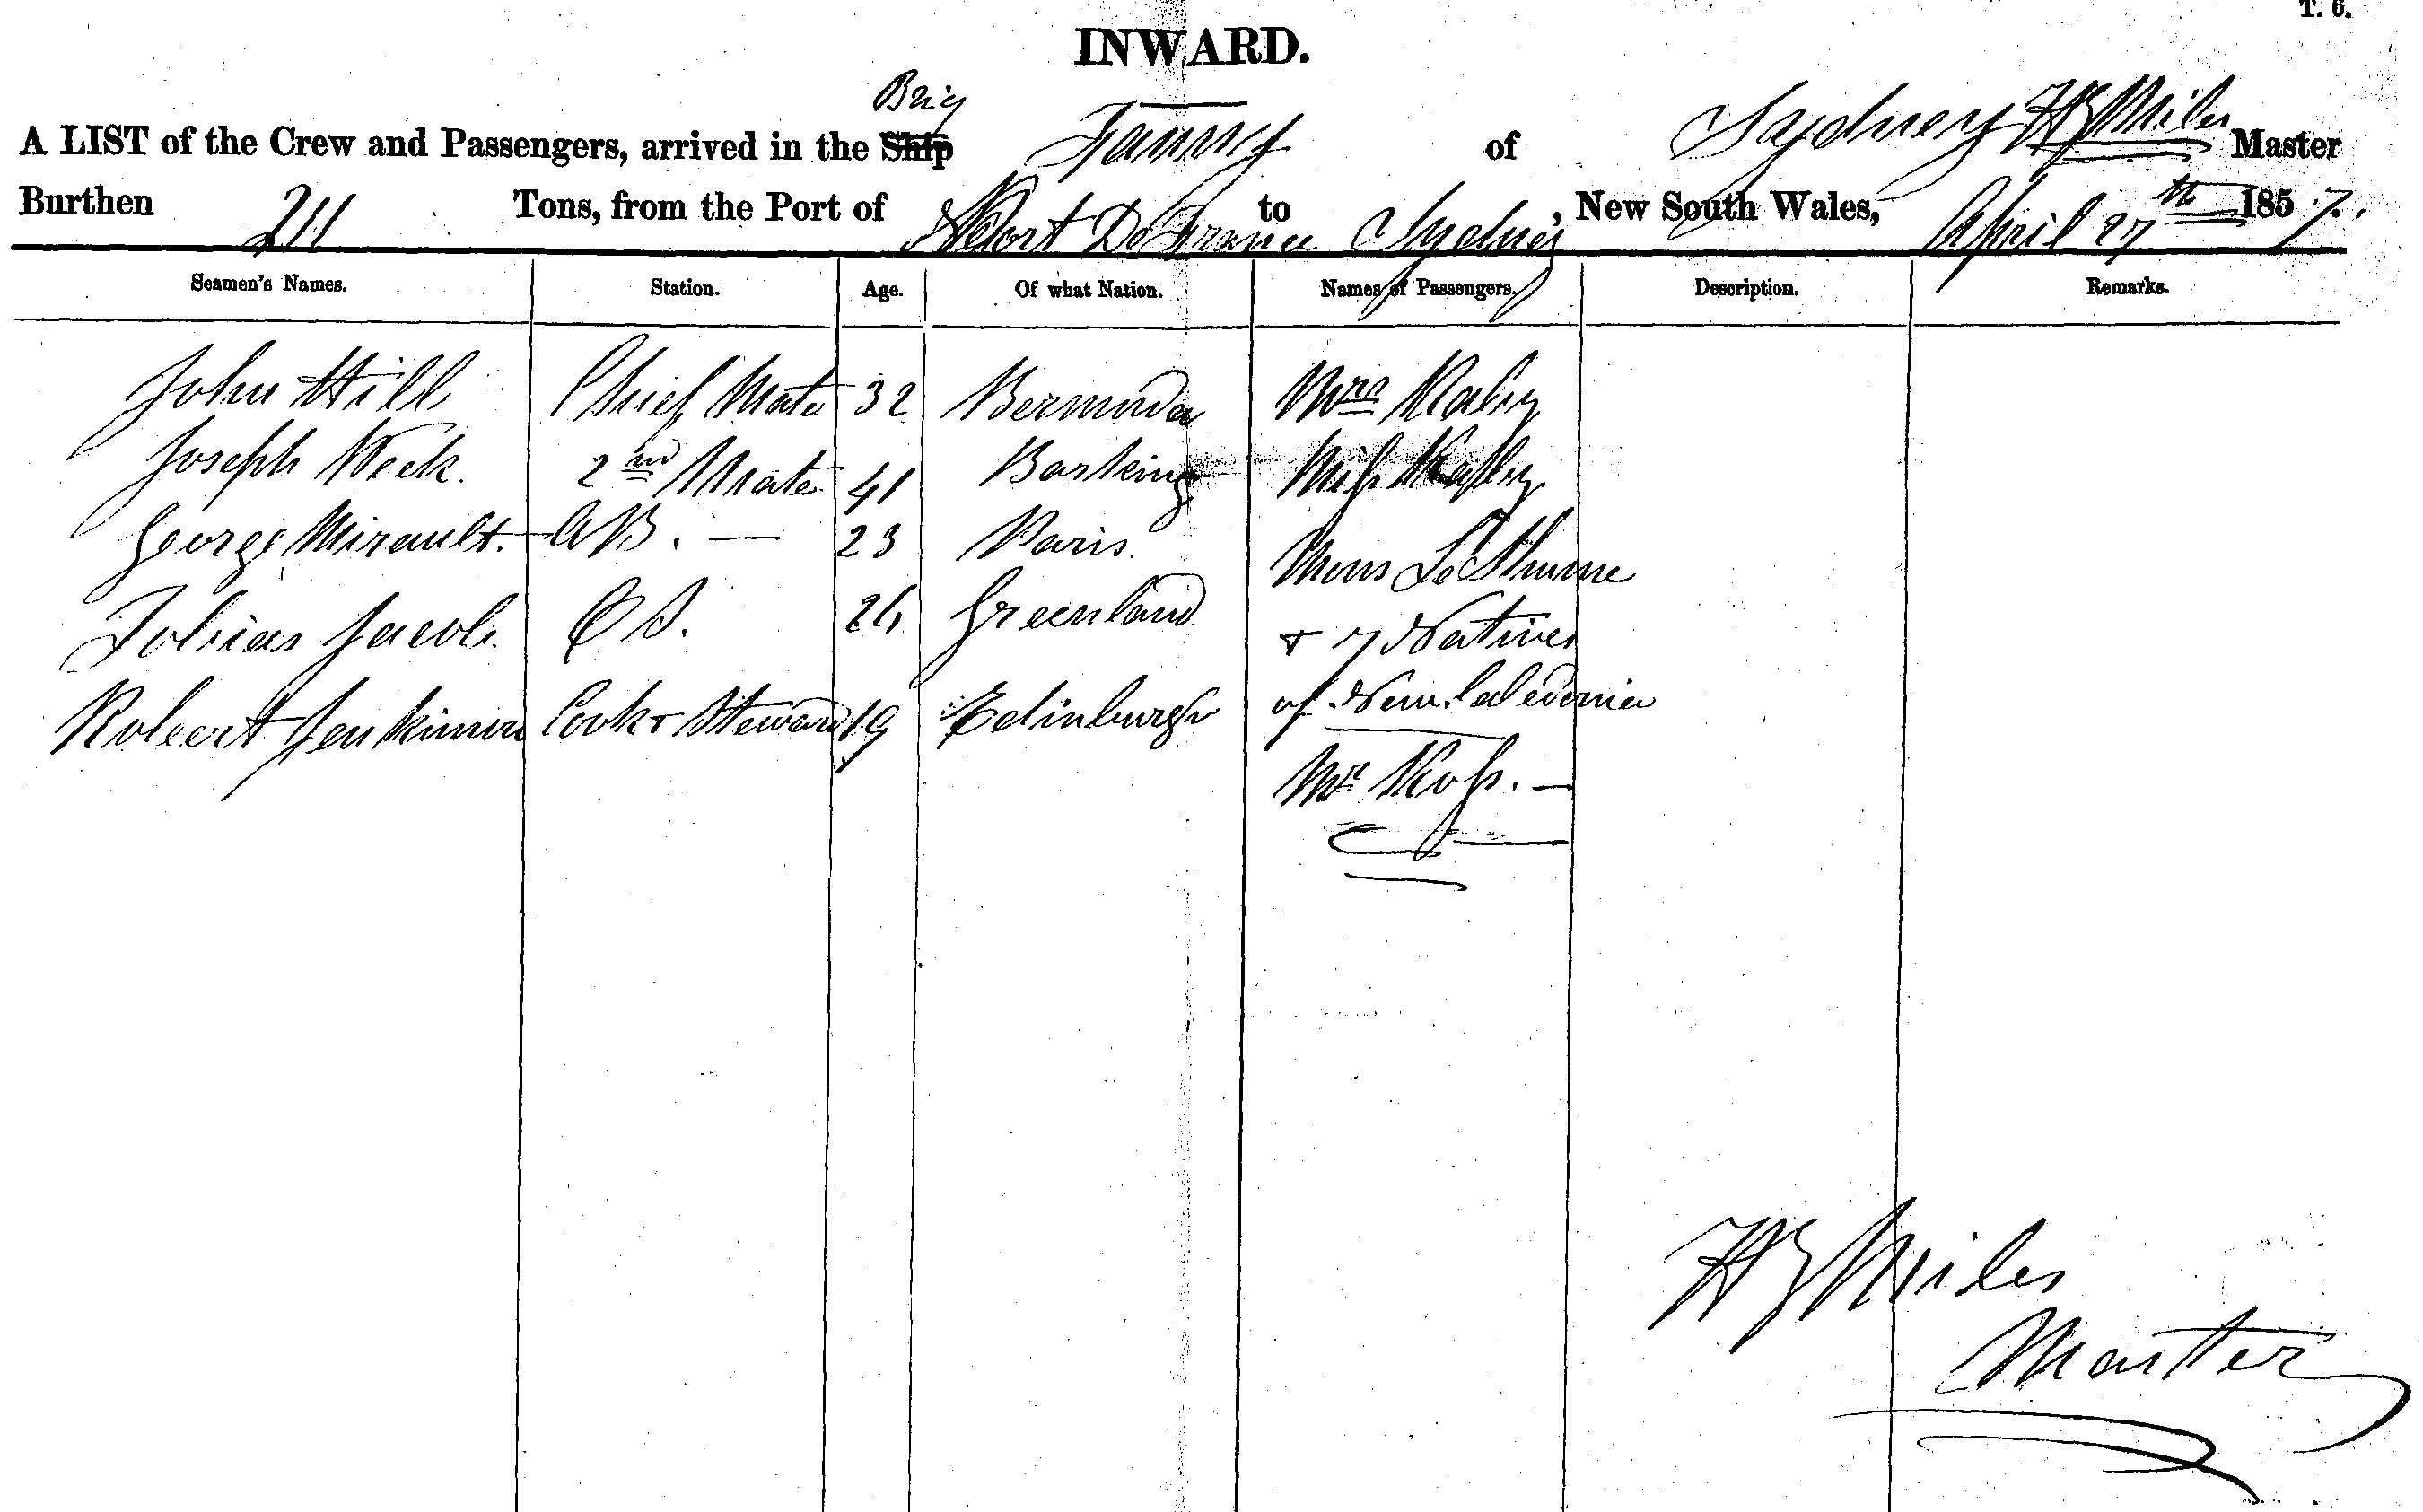 T. 6.
INWARD.
Brig
A LIST of the Crew and Passengers, arrived in the Ship Fanny of Sydney HG Miles Master
Burthen 211 Tons, from the Port of Port De France to Sydney, New South Wales, April 27th 1857.
Seamen's Names. Station. Age. Of what Nation. Names of Passengers. Description. Remarks.
John Hill Chief Mate 32 Bermuda Mrs Raby
Joseph Week. 2nd Mate 41 Barking Miss Raby
George Mirault. AB. — 23 Paris. Mons Le
Tobias Jacob. OS. 24 Greenland & 7 Natives
of New Caledonia
Robert Jenkinson Cook & Steward 19 Edinburgh
Mr Ross. —
Miles
Master